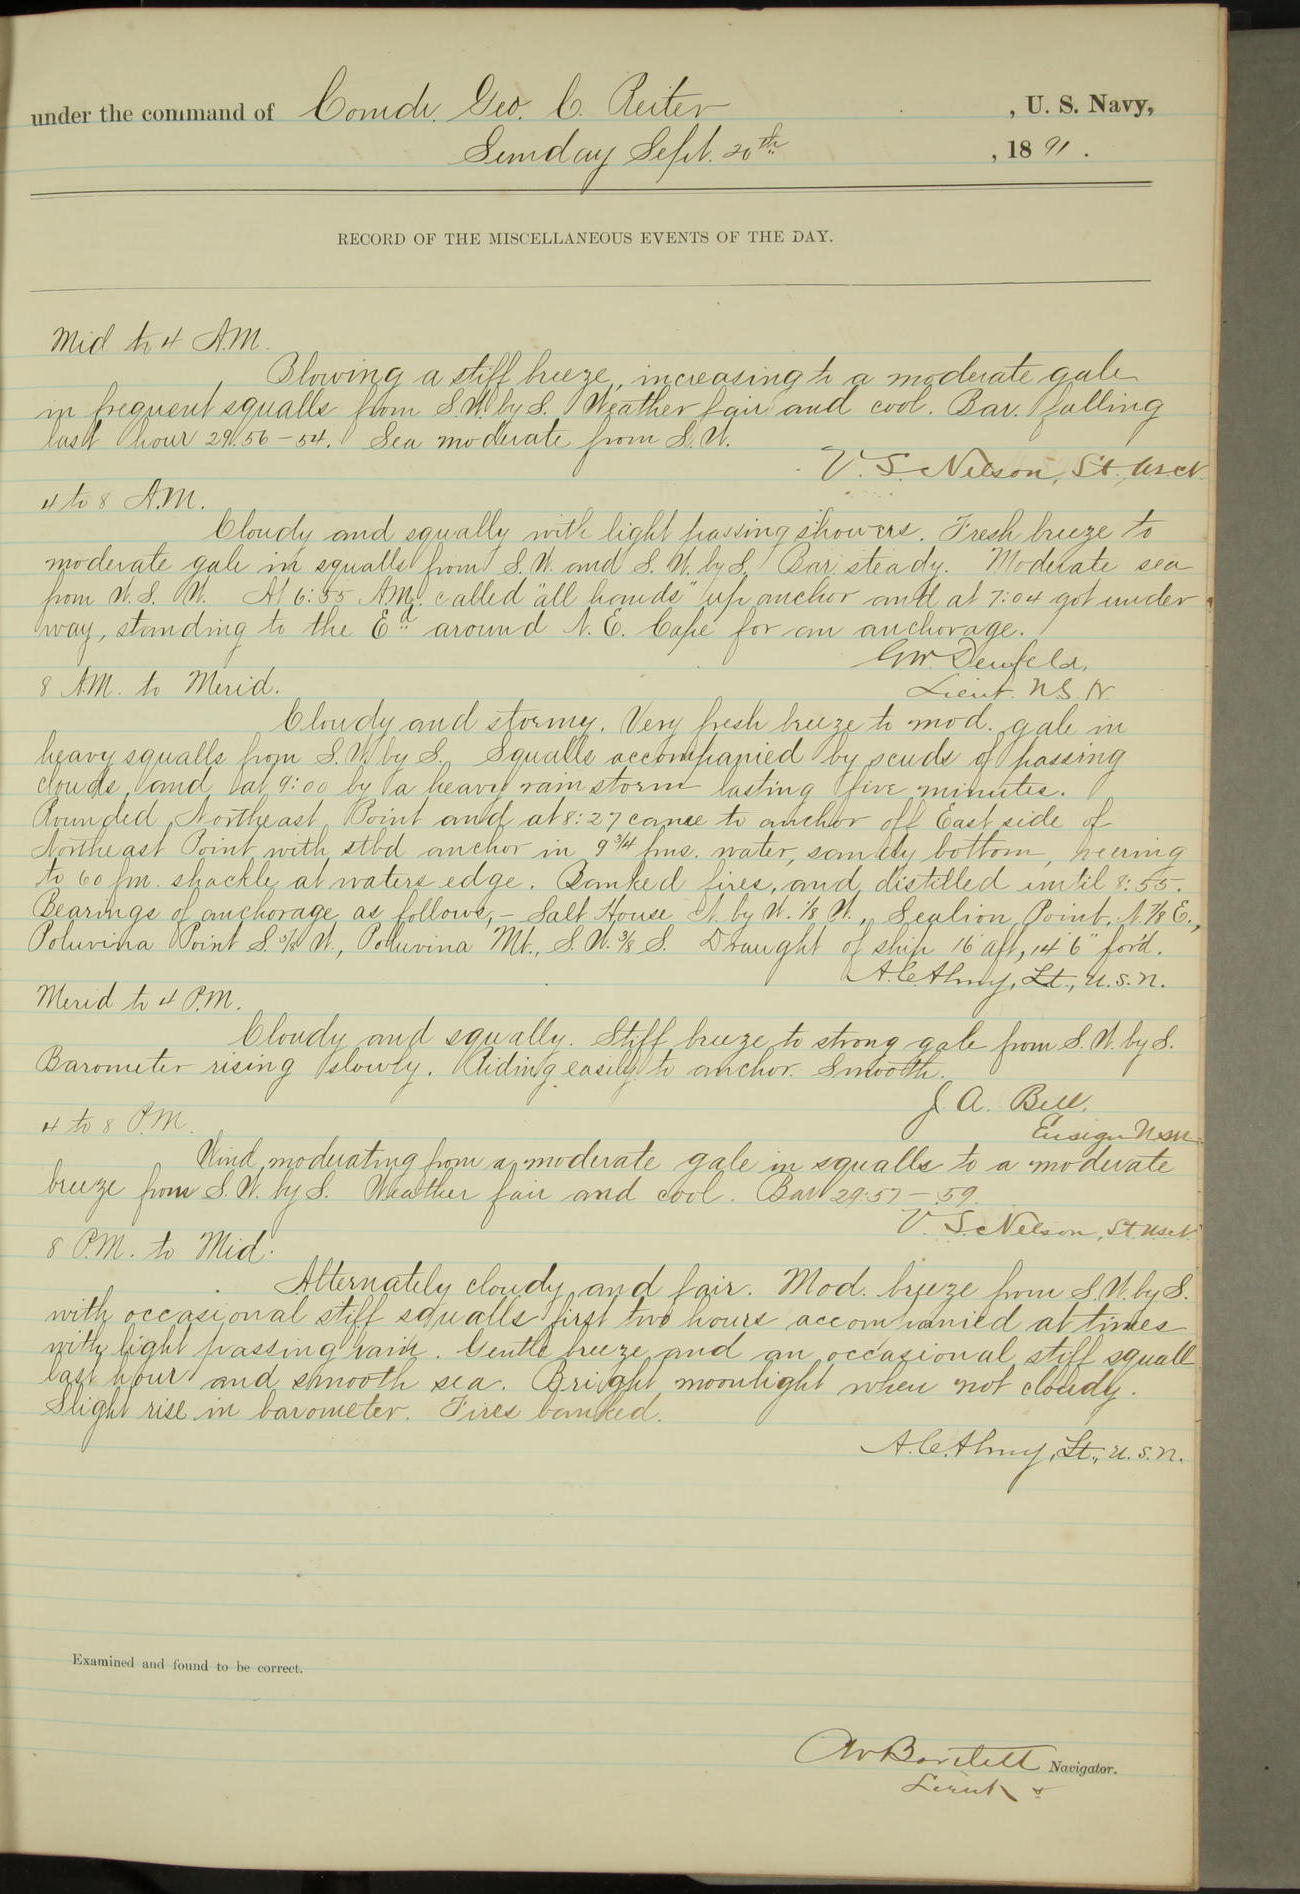 under the command of Comdr. Geo. C. Reiter, U. S. Navy,
Sunday Sept. 20th, 1891.
RECORD OF THE MISCELLANEOUS EVENTS OF THE DAY.
Mid to 4 A.M.
Blowing a stiff breeze, increasing to a moderate gale
in frequent squalls from S.W. by S. Weather fair and cool. Bar. falling
last hour 29.56-54. Sea moderate from S.W.
V. S. Nelson, Lt. U.S.N.
4 to 8 A.M.
Cloudy and squally with light passing showers. Fresh breeze to
moderate gale in squalls from S.W. and S.W. by S. Bar. steady. Moderate sea
from W.S.W. At 6:55 A.M. called "all hands" up anchor and at 7:04 got under
way, standing to the Ed around N.E. Cape for an anchorage.
G.W. Denfeld,
Lieut. U.S.N.
8 A.M. to Merid.
Cloudy and stormy. Very fresh breeze to mod. gale in
heavy squalls from S.W. by S. Squalls accompanied by scuds of passing
clouds, and at 9:00 by a heavy rain storm lasting five minutes.
Rounded Northeast Point and at 8:27 came to anchor off East side of
Northeast Point with stbd anchor in 9 3/4 fms. water, sandy bottom, veering
to 60 fm. shackle at waters edge. Banked fires, and distilled until 8:55.
Bearings of anchorage as follows,- Salt House N. by W. 1/8 W., Sealion Point, N. 7/8 E.,
Poluvina Point S 3/8 W., Poluvina Mt., S.W. 3/8 S. Draught of ship 16' aft, 14' 6" for'd.
A.C. Almy, Lt., U.S.N.
Merid to 4 P.M.
Cloudy and squally. Stiff breeze to strong gale from S.W. by S.
Barometer rising slowly. Riding easily to anchor. Smooth.
J. A. Bell,
Ensign U.S.N.
4 to 8 P.M.
Wind moderating from a moderate gale in squalls to a moderate
breeze from S.W. by S. Weather fair and cool. Bar 29.57-.59.
V. S. Nelson, Lt. U.S.N.
8 P.M. to Mid.
Alternately cloudy and fair. Mod. breeze from S.W. by S.
with occasional stiff squalls first two hours accompanied at times
with light passing rain. Gentle breeze and an occasional stiff squall
last hour and smooth sea. Bright moonlight when not cloudy.
Slight rise in barometer. Fires banked.
A.C. Almy, Lt., U.S.N.
Examined and found to be correct.
Bartlett Navigator.
Lieut